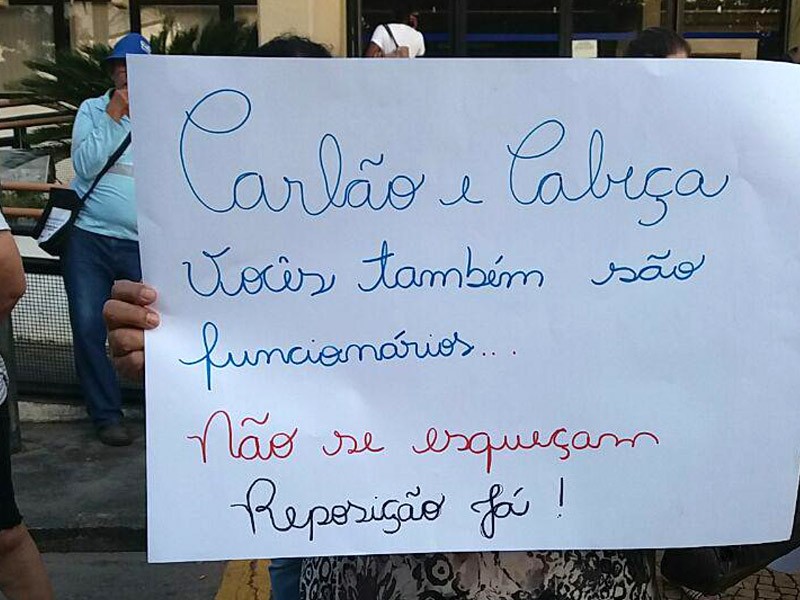 Carlão e Cabeça
Vocês também são
funcionários...
Não se esqueçam
Reposição Já!